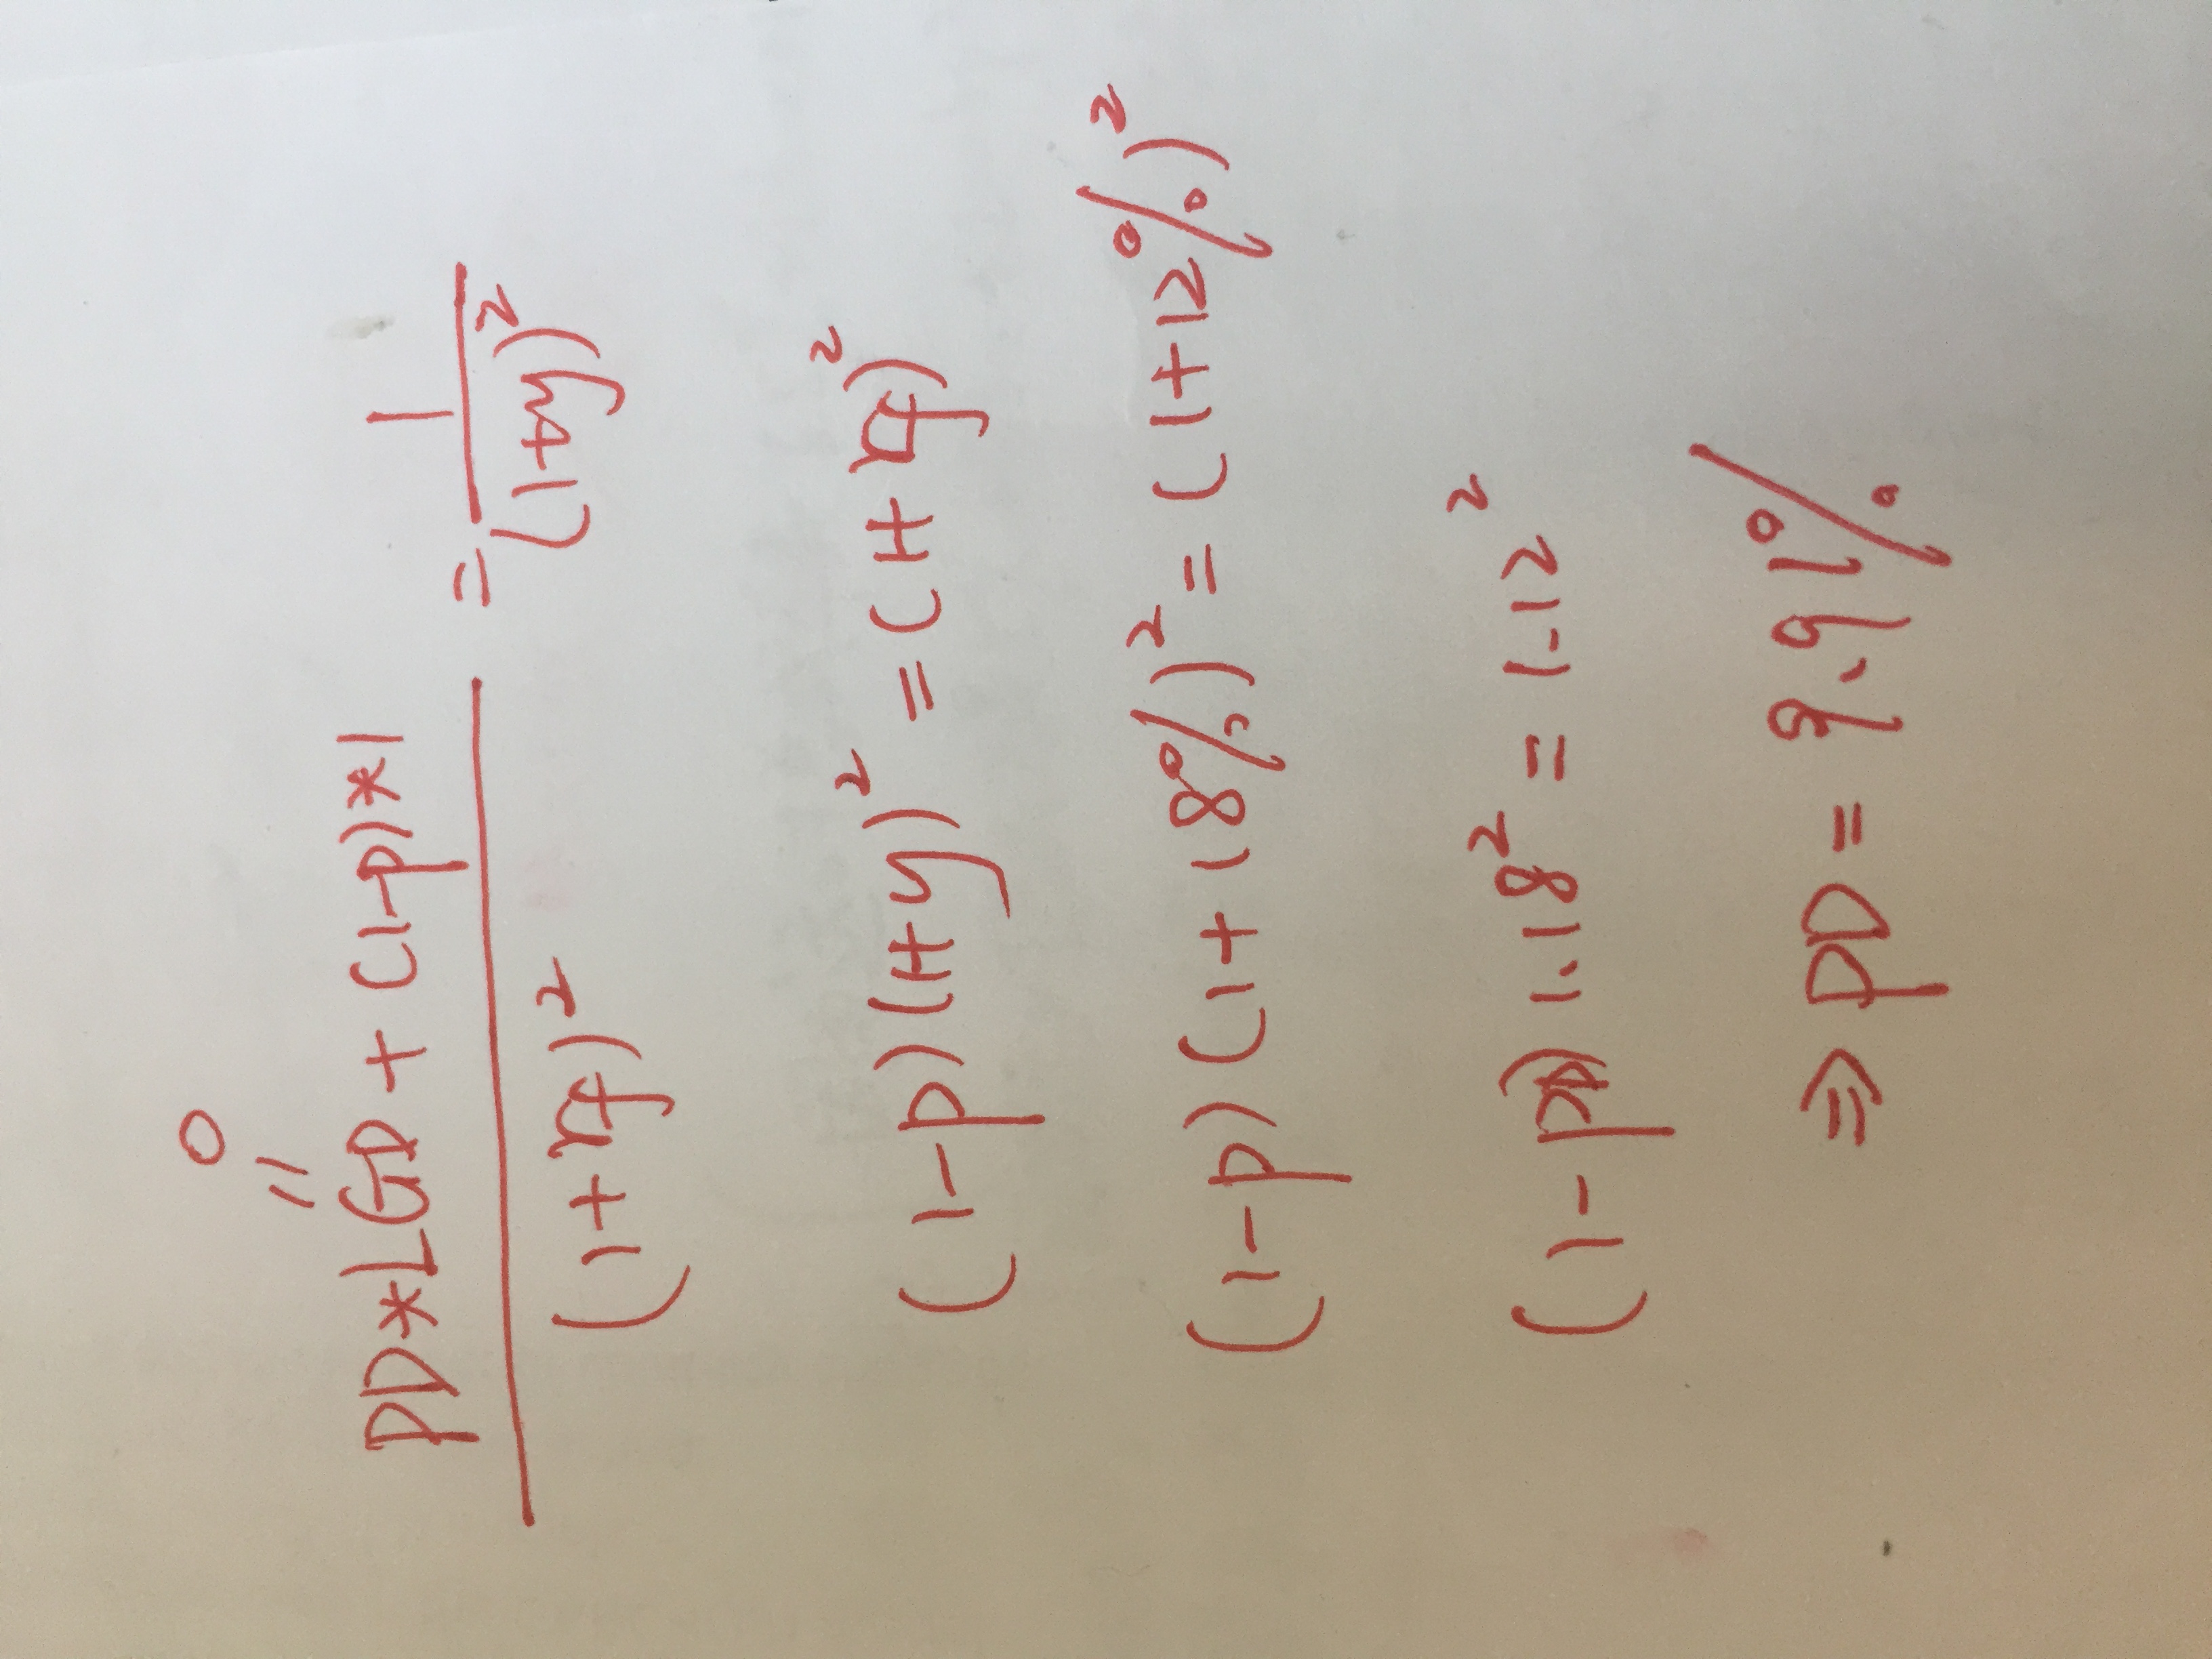 0
=
PD*LGD + (1-p)*1 = 1
(1+rf)² (1+y)²
(1-p)(1+y)² = (1+rf)²
(1-p)(1+18%)² = (1+12%)²
(1-p)1.18² = 1.12²
⇒ PD = 9.91%